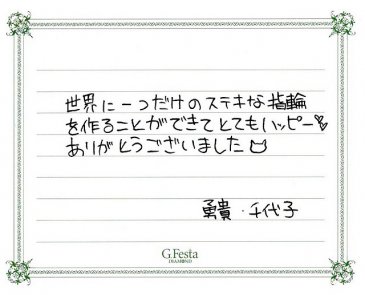 世界に一つだけのステキな指輪
を作ることができてとてもハッピー♡
ありがとうございました
勇貴・千代子
G.Festa
DIAMOND